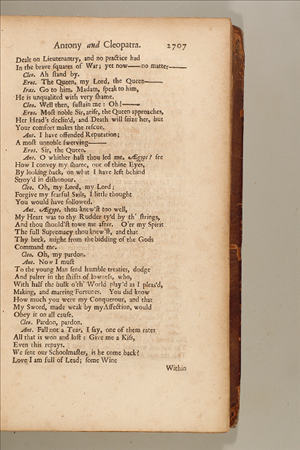 Antony and Cleopatra. 2707
Dealt on Lieutenantry, and no practice had
In the brave squares of War; yet now—— no matter——
Cleo. Ah stand by.
Eros. The Queen, my Lord, the Queen——
Iras. Go to him, Madam, speak to him,
He is unqualited with very shame.
Cleo. Well then, sustain me: Oh!——
Eros. Most noble Sir, arise, the Queen approaches,
Her Head's declin'd, and Death will seize her, but
Your comfort makes the rescue.
Ant. I have offended Reputation;
A most unnoble swerving——
Eros. Sir, the Queen.
Ant. O whither hast thou led me, Ægypt? see
How I convey my shame, out of thine Eyes,
By looking back, on what I have left behind
Stroy'd in dishonour.
Cleo. Oh, my Lord, my Lord;
Forgive my fearful Sails, I little thought
You would have followed.
Ant. Ægypt, thou knew'st too well,
My Heart was to thy Rudder ty'd by th' strings,
And thou should'st towe me after. O'er my Spirit
The full Supremacy thou knew'st, and that
Thy beck, might from the bidding of the Gods
Command me.
Cleo. Oh, my pardon.
Ant. Now I must
To the young Man send humble treaties, dodge
And palter in the shifts of lowness, who,
With half the bulk o'th' World play'd as I pleas'd,
Making, and marring Fortunes. You did know
How much you were my Conquerour, and that
My Sword, made weak by my Affection, would
Obey it on all cause.
Cleo. Pardon, pardon.
Ant. Fall not a Tear, I say, one of them rates
All that is won and lost: Give me a Kiss,
Even this repays.
We sent our Schoolmaster, is he come back?
Love I am full of Lead; some Wine
Within